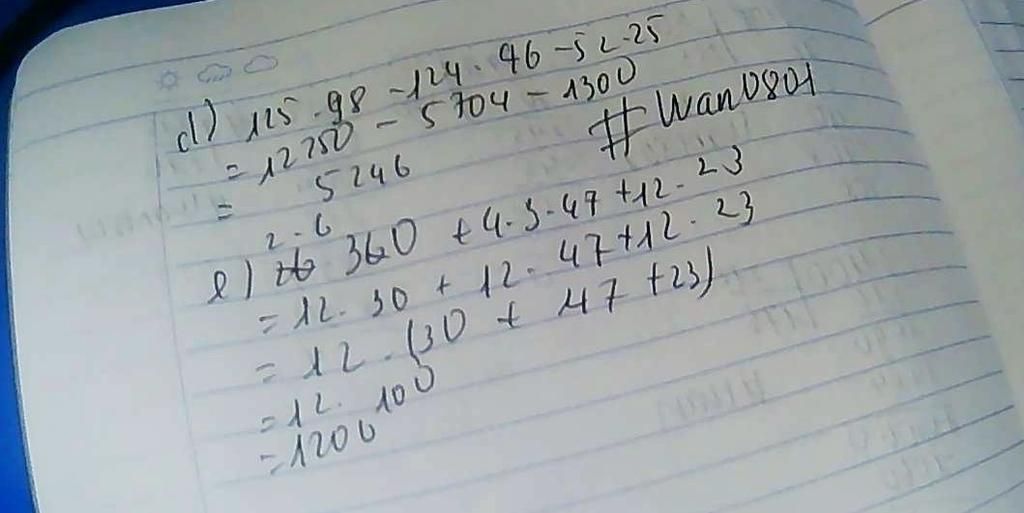 d) 125.98 - 124.46 - 52.25
= 12250 - 5704 - 1300
= 5246
#Wan0801
e) 2.6 . 360 + 4.3.47 + 12.23
= 12.30 + 12.47 + 12.23
= 12.(30 + 47 + 23)
= 12.100
= 1200